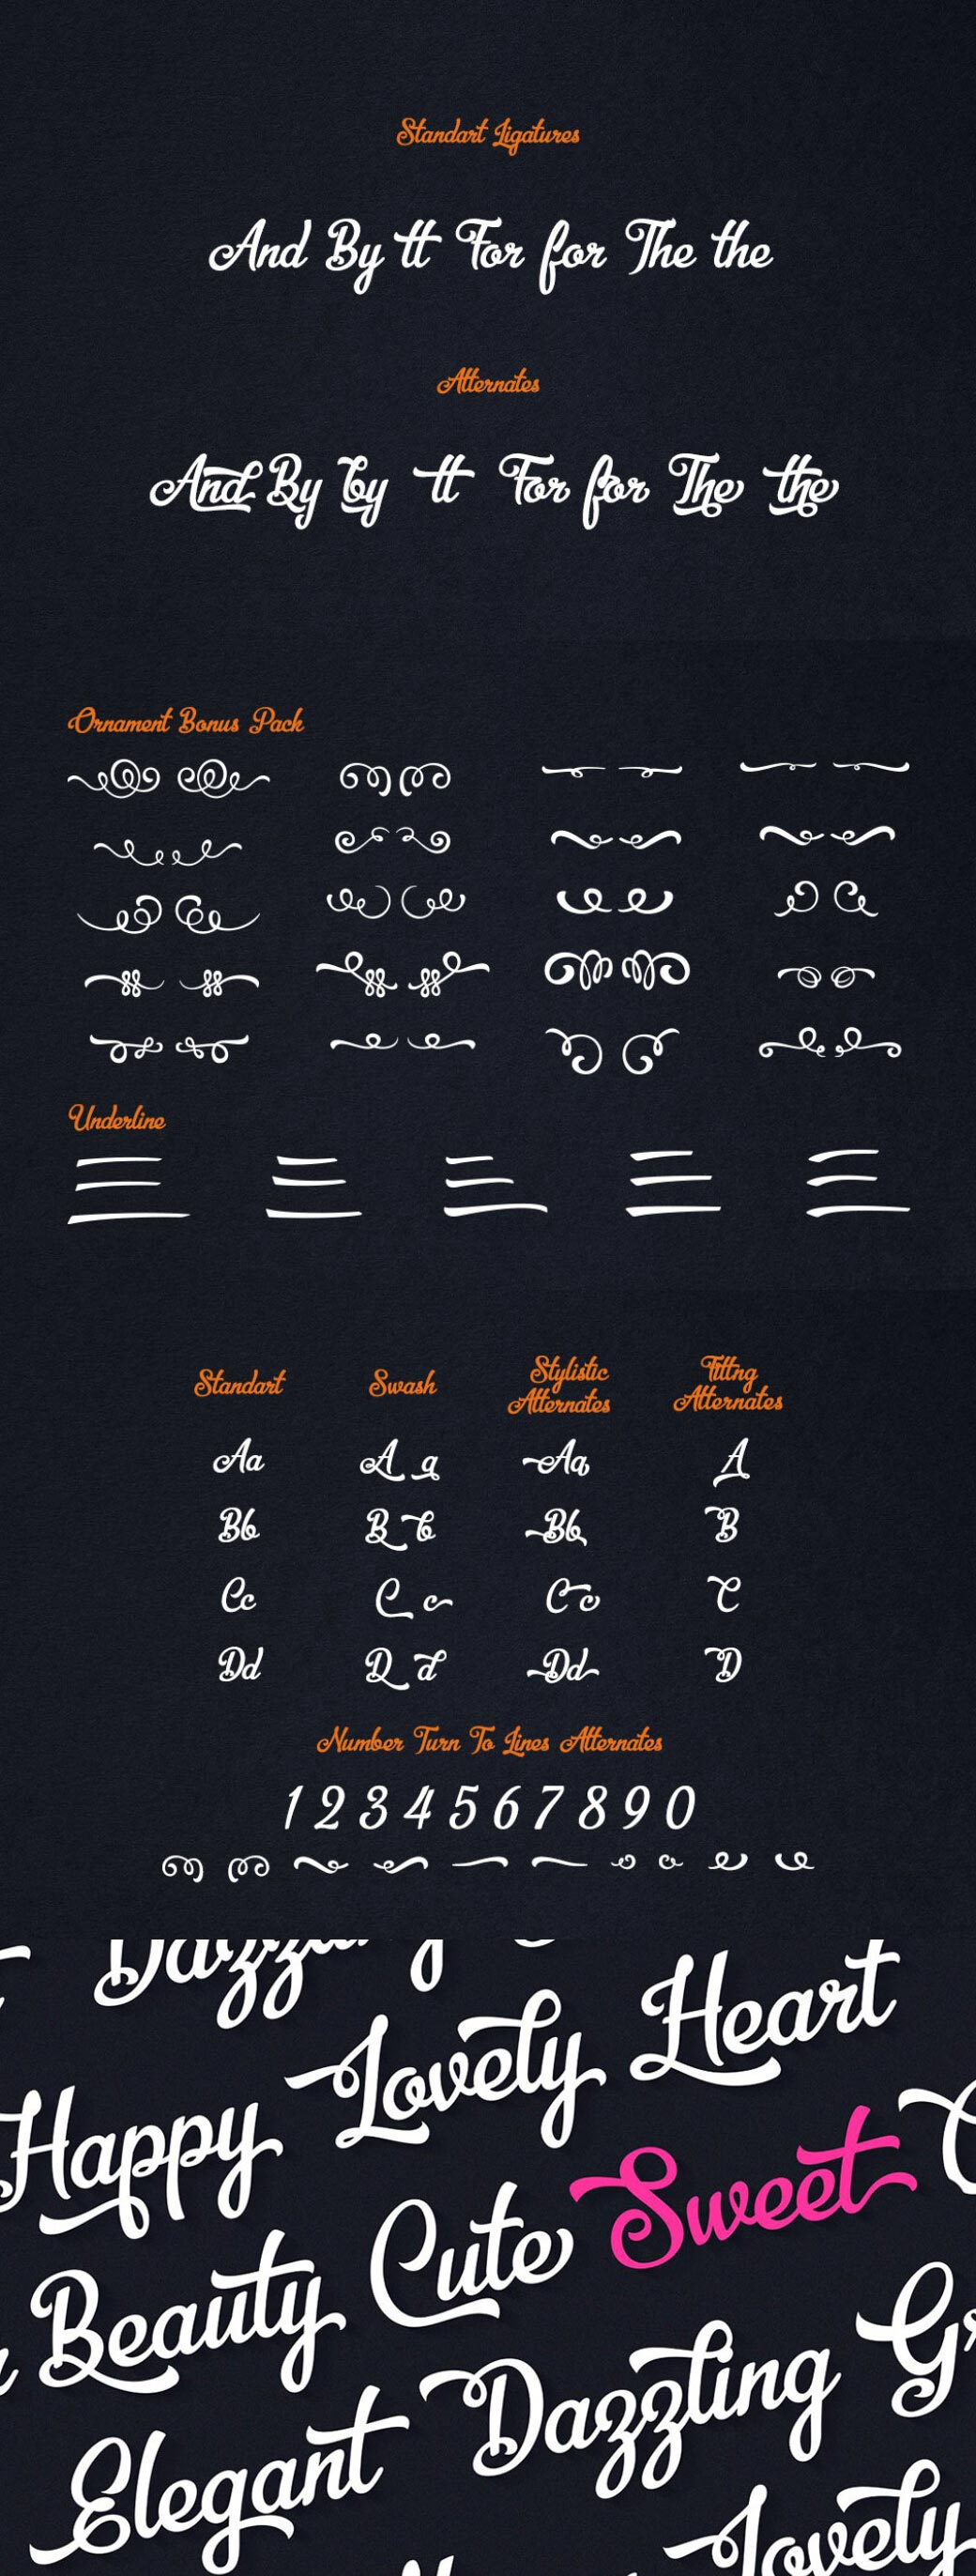 Standart Ligatures
And By tt For for The the
Alternates
And By by tt For for The the
Ornament Bonus Pack
Underline
Standart Swash Stylistic Alternates Tittng Alternates
Aa A a Aa A
Bb B b Bb B
Cc C c Cc C
Dd D d Dd D
Number Turn To Lines Alternates
1 2 3 4 5 6 7 8 9 0
Happy Lovely Heart
Beauty Cute Sweet
Elegant Dazzling
Lovely